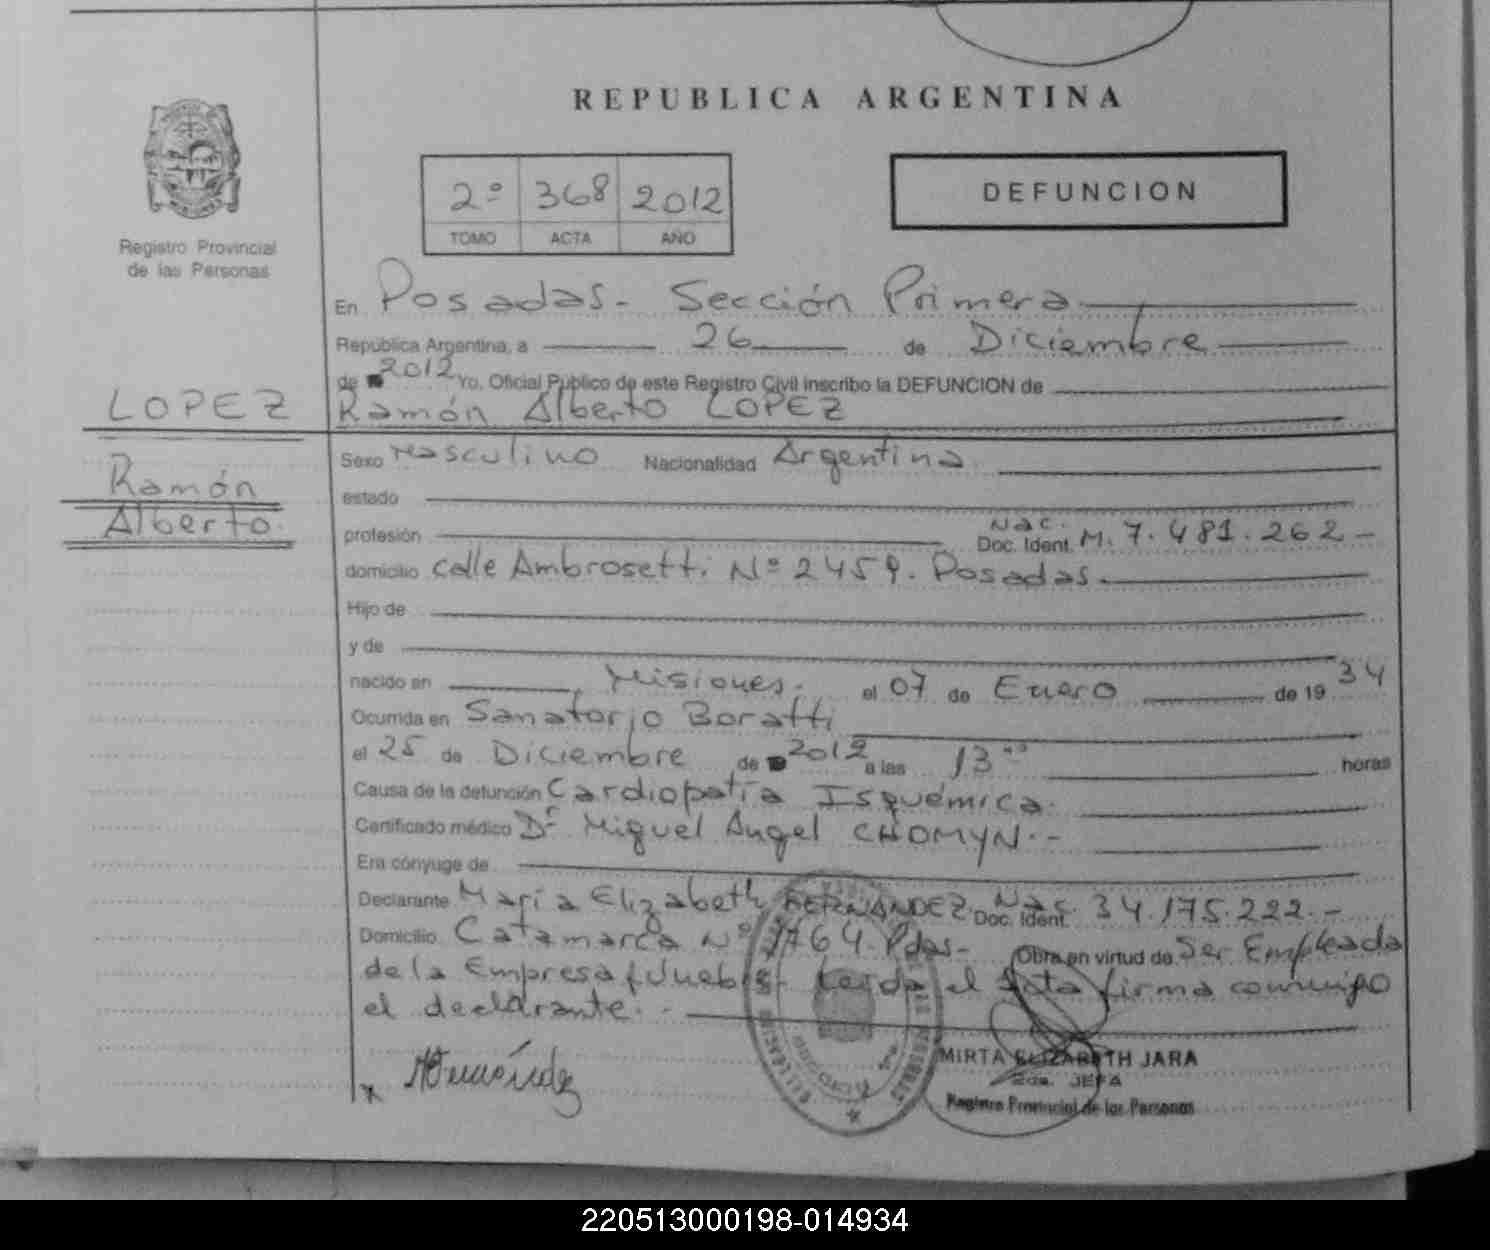 REPUBLICA ARGENTINA
2º 368 2012
TOMO ACTA AÑO
DEFUNCION
Registro Provincial
de las Personas
En Posadas - Sección Primera
Republica Argentina, a 26 de Diciembre
de 2012 Yo, Oficial Público de este Registro Civil inscribo la DEFUNCION de
LOPEZ
Ramón
Alberto
Ramón Alberto LOPEZ
Sexo Masculino Nacionalidad Argentina
estado
profesión Nac. Doc. Ident. M. 7.481.262-
domicilio calle Ambrosetti Nº 2459. Posadas.
Hijo de
y de
nacido en Misiones. el 07 de Enero de 1934
Ocurrida en Sanatorio Boratti
el 25 de Diciembre de 2012 a las 13 horas
Causa de la defunción Cardiopatía Isquémica.
Certificado médico Dr Miguel Angel CHOMYN.-
Era cónyuge de
Declarante María Elizabeth FERNANDEZ Nac. Doc. Ident. 34.175.222.-
Domicilio Catamarca Nº 1764. Pdas- Obra en virtud de Ser Empleada
de la Empresa el Acta firma conmigo
el declarante.-
MIRTA ELIZABETH JARA
2da. JEFA
Registro Provincial de las Personas
220513000198-014934